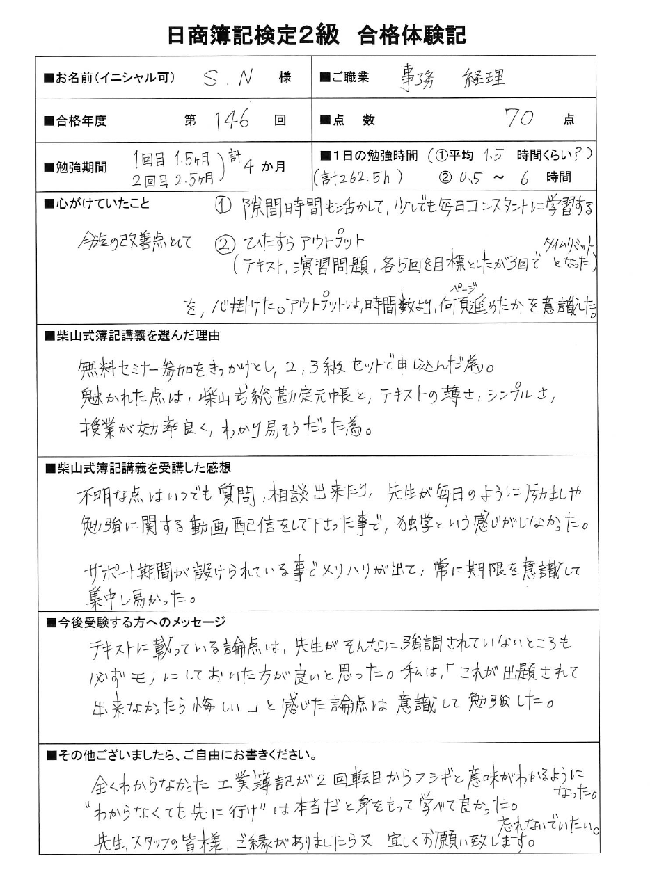 日商簿記検定2級　合格体験記
■お名前(イニシャル可)　S.N　様
■ご職業　事務　経理
■合格年度　第 146 回
■点　数　70 点
■勉強期間　1回目 1.5ヶ月 2回目 2.5ヶ月 ) 計 4 か月
■1日の勉強時間 (①平均 1.5 時間くらい?)
(計262.5h) ② 0.5 ～ 6 時間
■心がけていたこと　① 隙間時間も活かして、少しでも毎日コンスタントに学習する
今迄の改善点として　② ひたすらアウトプット
(テキスト、演習問題、各5回を目標としたが3回でタイムリミットとなった)
を、心掛けた。アウトプットは、時間数より、何頁(ページ)進めたかを意識した。
■柴山式簿記講義を選んだ理由
無料セミナー参加をきっかけとし、2、3級セットで申し込んだ為。
魅かれた点は、柴山式総勘定元帳と、テキストの薄さ、シンプルさ、
授業が効率良く、わかり易そうだった為。
■柴山式簿記講義を受講した感想
不明な点はいつでも質問、相談出来たり、先生が毎日のように励ましや
勉強に関する動画配信をして下さった事で、独学という感じがしなかった。
サポート期間が設けられている事でメリハリが出て、常に期限を意識して
集中し易かった。
■今後受験する方へのメッセージ
テキストに載っている論点は、先生がそんなに強調されていないところも
必ずモノにしておいた方が良いと思った。私は、「これが出題されて
出来なかったら悔しい」と感じた論点は意識して勉強した。
■その他ございましたら、ご自由にお書きください。
全くわからなかった工業簿記が2回転目からフシギと意味がわかるようになった。
"わからなくても先に行け"は本当だと身をもって学べて良かった。
忘れないでいたい。
先生、スタッフの皆様、ご縁がありましたら又宜しくお願い致します。